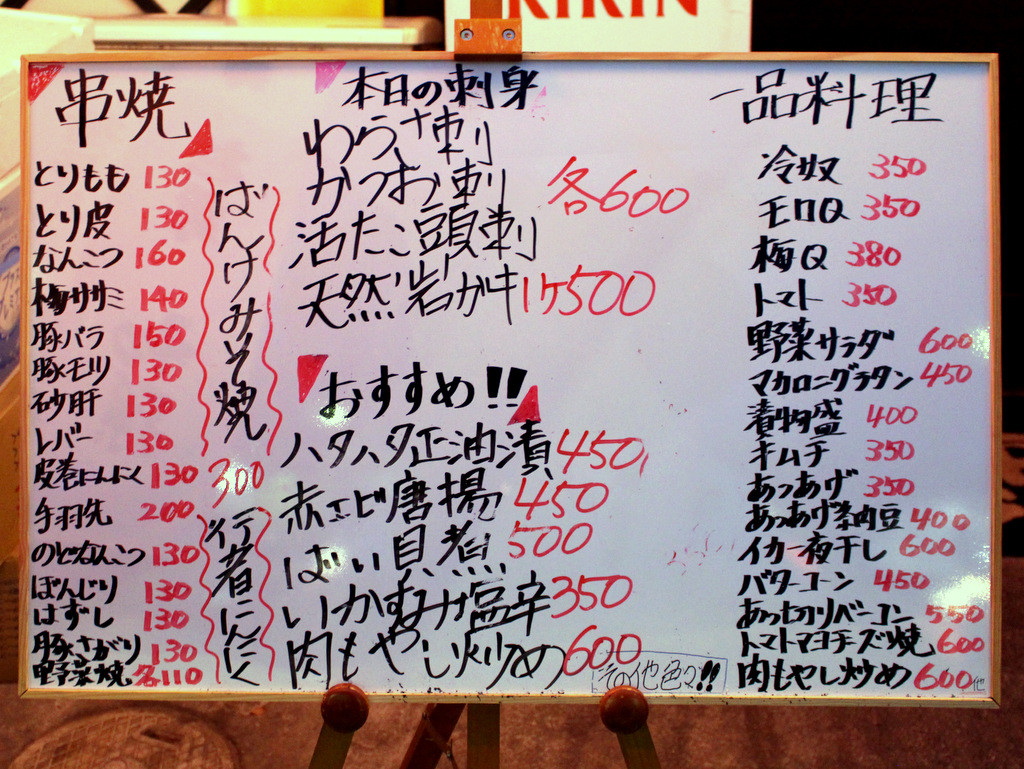 KIRIN
串焼
とりもも 130
とり皮 130
なんこつ 160
梅ササミ 140
豚バラ 150
豚モツ 130
砂肝 130
レバー 130
皮巻にんにく 130
手羽先 200
のどなんこつ 130
ぼんじり 130
はずし 130
豚さがり 130
野菜焼 各110
ばんけみそ焼
300
行者にんにく
本日の刺身
わらさ刺
かつお刺
各600
活たこ頭刺
天然岩ガキ 1ケ500
おすすめ!!
ハタハタ正油漬 450
赤エビ唐揚 450
ばい貝煮 500
いかすみ塩辛 350
肉もやし炒め 600
その他色々!!
一品料理
冷奴 350
モロQ 350
梅Q 380
トマト 350
野菜サラダ 600
マカロニグラタン 450
漬物盛 400
キムチ 350
あつあげ 350
あつあげ納豆 400
イカ一夜干し 600
バターコーン 450
あつ切りベーコン 550
トマトマヨチーズ焼 600
肉もやし炒め 600 他